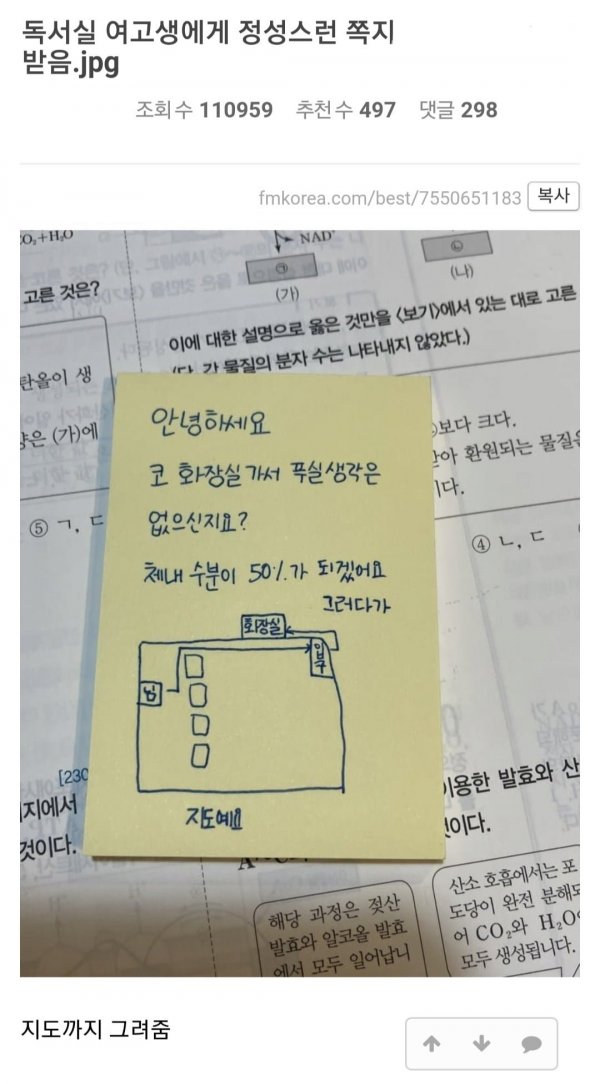 독서실 여고생에게 정성스런 쪽지
받음.jpg
조회수 110959 추천수 497 댓글 298
fmkorea.com/best/7550651183 복사
CO₂+H₂O
NAD⁺
㉠
㉡
(가)
(나)
고른 것은?
이에 대한 설명으로 옳은 것만을 <보기>에서 있는 대로 고른
(단, 각 물질의 분자 수는 나타내지 않았다.)
탄율이 생
양은 (가)에
보다 크다.
아 환원되는 물질은
이다.
⑤ ㄱ, ㄷ
④ ㄴ, ㄷ
안녕하세요
코 화장실가서 푸실생각은
없으신지요?
체내 수분이 50%가 되겠어요
그러다가
화장실
입구
님
지도예요
[230
지에서
것이다.
이용한 발효와 산
것이다.
해당 과정은 젖산
발효와 알코올 발효
에서 모두 일어납니
산소 호흡에서는 포
도당이 완전 분해되
어 CO₂와 H₂O
모두 생성됩니다.
지도까지 그려줌